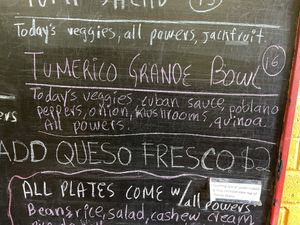 Today's veggies, all powers, jackfruit.
TUMERICO GRANDE BOWL 16
Today's veggies, cuban sauce, poblano
peppers, onion, mushrooms, quinoa.
All powers.
ADD QUESO FRESCO $2
ALL PLATES COME w/ all powers
Beans rice, salad, cashew cream